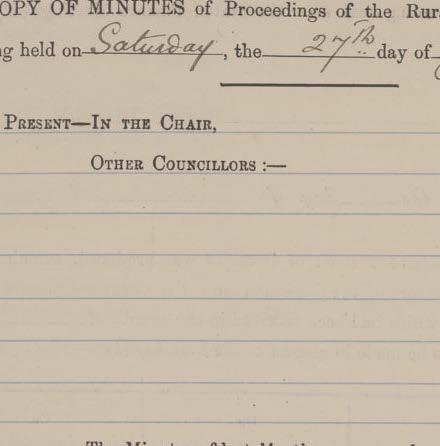 OPY OF MINUTES of Proceedings of the Rur
g held on Saturday, the 27th day of
PRESENT—IN THE CHAIR,
OTHER COUNCILLORS :—
The Minutes of last Meeting